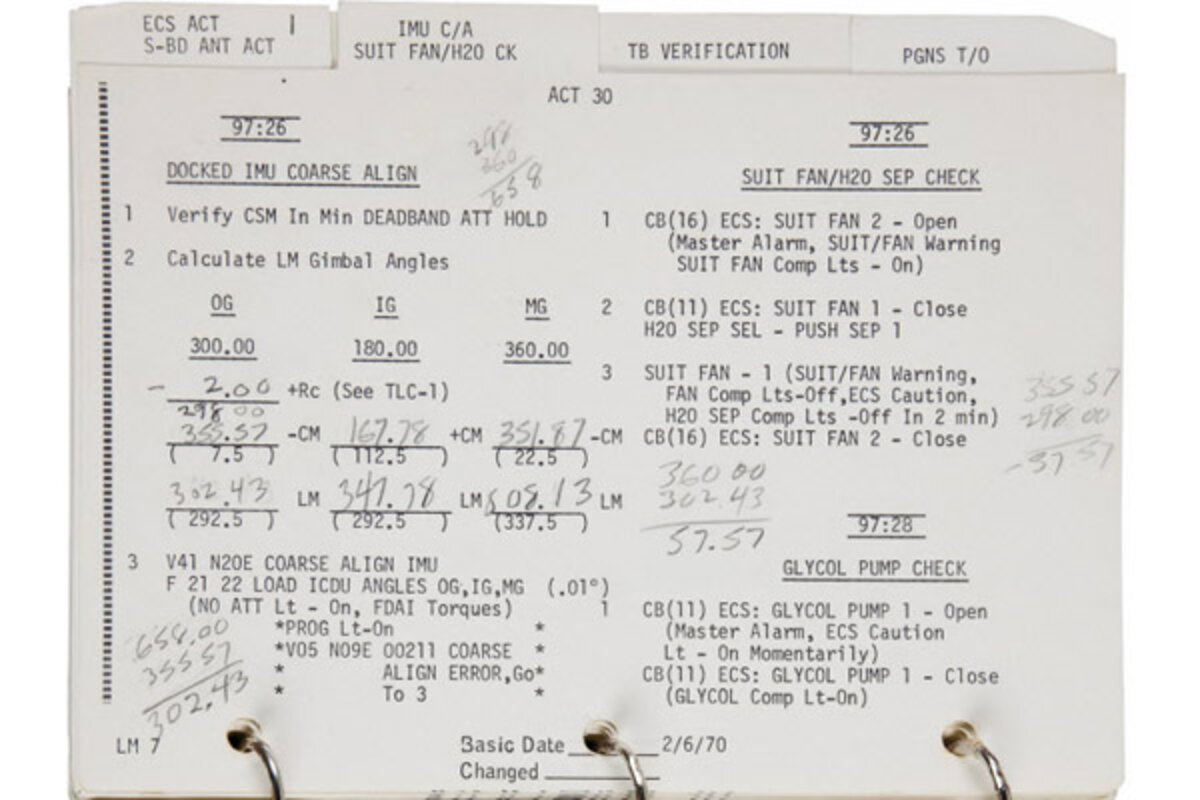 ECS ACT
S-BD ANT ACT
IMU C/A
SUIT FAN/H20 CK
TB VERIFICATION
PGNS T/O
ACT 30
97:26
298
360
658
DOCKED IMU COARSE ALIGN
1 Verify CSM In Min DEADBAND ATT HOLD
2 Calculate LM Gimbal Angles
OG IG MG
300.00 180.00 360.00
- 2.00 +Rc (See TLC-1)
298 00
355.57 -CM 167.78 +CM 351.87 -CM
( 7.5 ) ( 112.5 ) ( 22.5 )
302.43 LM 347.78 LM 08.13 LM
( 292.5 ) ( 292.5 ) (337.5 )
3 V41 N20E COARSE ALIGN IMU
F 21 22 LOAD ICDU ANGLES OG,IG,MG (.01°)
(NO ATT Lt - On, FDAI Torques)
*PROG Lt-On *
*V05 N09E 00211 COARSE *
* ALIGN ERROR,Go*
* To 3 *
658.00
355 57
302.43
97:26
SUIT FAN/H20 SEP CHECK
1 CB(16) ECS: SUIT FAN 2 - Open
(Master Alarm, SUIT/FAN Warning
SUIT FAN Comp Lts - On)
2 CB(11) ECS: SUIT FAN 1 - Close
H20 SEP SEL - PUSH SEP 1
3 SUIT FAN - 1 (SUIT/FAN Warning,
FAN Comp Lts-Off,ECS Caution,
H20 SEP Comp Lts -Off In 2 min)
CB(16) ECS: SUIT FAN 2 - Close
355 57
298 00
-57 57
360 00
302.43
57.57
97:28
GLYCOL PUMP CHECK
1 CB(11) ECS: GLYCOL PUMP 1 - Open
(Master Alarm, ECS Caution
Lt - On Momentarily)
CB(11) ECS: GLYCOL PUMP 1 - Close
(GLYCOL Comp Lt-On)
LM 7
Basic Date 2/6/70
Changed